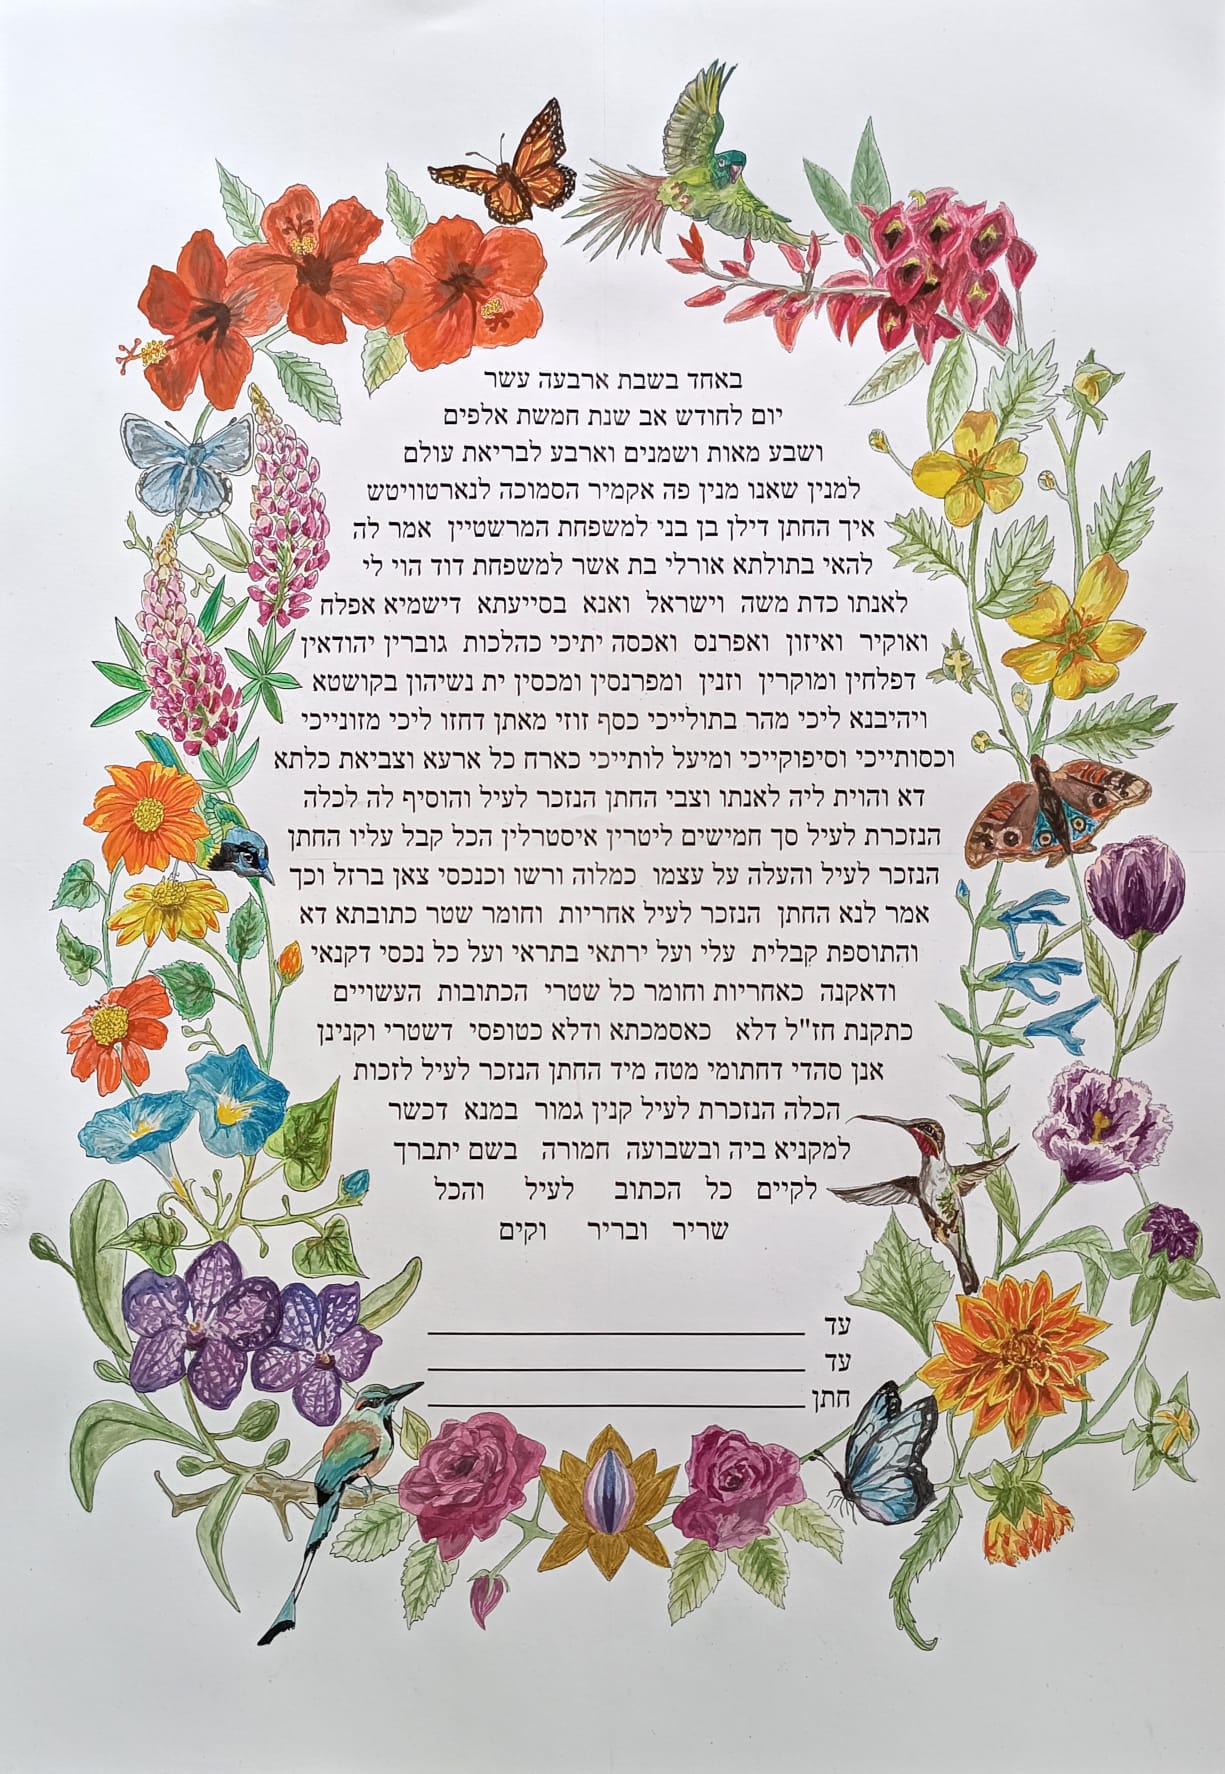 באחד בשבת ארבעה עשר
יום לחודש אב שנת חמשת אלפים
ושבע מאות ושמנים וארבע לבריאת עולם
למנין שאנו מנין פה אקמיר הסמוכה לנארטוויטש
איך החתן דילן בן בני למשפחת המרשטיין אמר לה
להאי בתולתא אורלי בת אשר למשפחת דוד הוי לי
לאנתו כדת משה וישראל ואנא בסייעתא דישמיא אפלח
ואוקיר ואיזון ואפרנס ואכסה יתיכי כהלכות גוברין יהודאין
דפלחין ומוקרין וזנין ומפרנסין ומכסין ית נשיהון בקושטא
ויהיבנא ליכי מהר בתולייכי כסף זוזי מאתן דחזו ליכי מזונייכי
וכסותייכי וסיפוקייכי ומיעל לותייכי כארח כל ארעא וצביאת כלתא
דא והוית ליה לאנתו וצבי החתן הנזכר לעיל והוסיף לה לכלה
הנזכרת לעיל סך חמישים ליטרין איסטרלין הכל קבל עליו החתן
הנזכר לעיל והעלה על עצמו כמלוה ורשו וכנכסי צאן ברזל וכך
אמר לנא החתן הנזכר לעיל אחריות וחומר שטר כתובתא דא
והתוספת קבלית עלי ועל ירתאי בתראי ועל כל נכסי דקנאי
ודאקנה כאחריות וחומר כל שטרי הכתובות העשויים
כתקנת חז"ל דלא כאסמכתא ודלא כטופסי דשטרי וקנינן
אנן סהדי דחתומי מטה מיד החתן הנזכר לעיל לזכות
הכלה הנזכרת לעיל קנין גמור במנא דכשר
למקניא ביה ובשבועה חמורה בשם יתברך
לקיים כל הכתוב לעיל והכל
שריר ובריר וקים
עד
עד
חתן